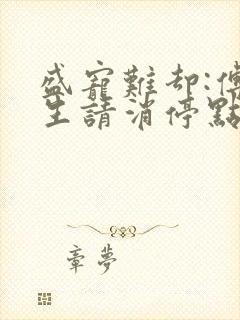 盛寵難却:傅
生請消停點
章夢